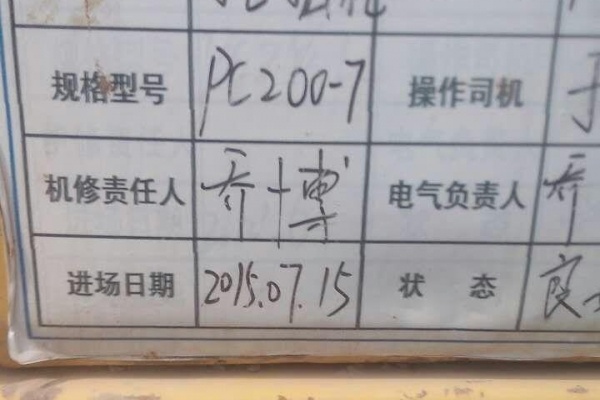 规格型号 PC200-7 操作司机
机修责任人 乔博 电气负责人 乔
进场日期 2015.07.15 状 态 良